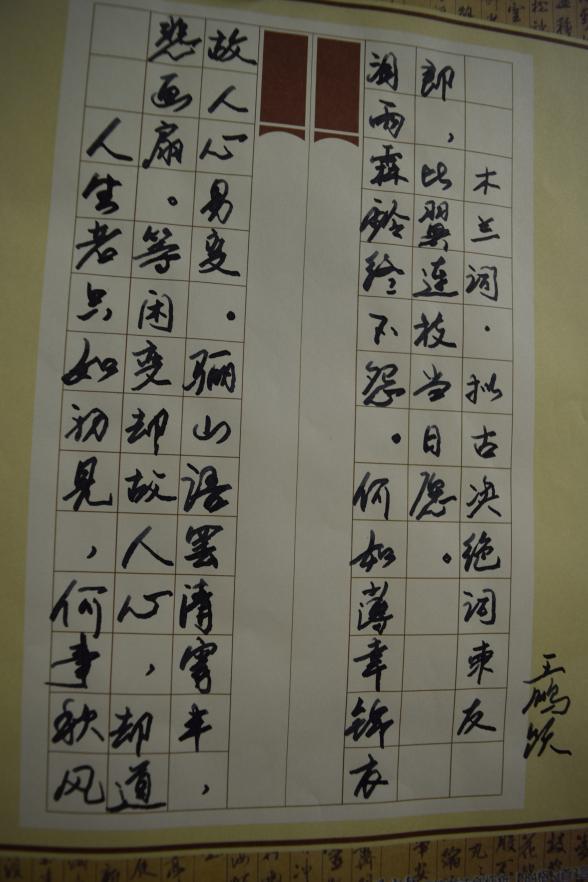 人生若只如初见，何事秋风
悲画扇。等闲变却故人心，却道
故人心易变。骊山语罢清宵半，
泪雨霖铃终不怨。何如薄幸锦衣
郎，比翼连枝当日愿。
木兰词·拟古决绝词柬友
王鹏跃